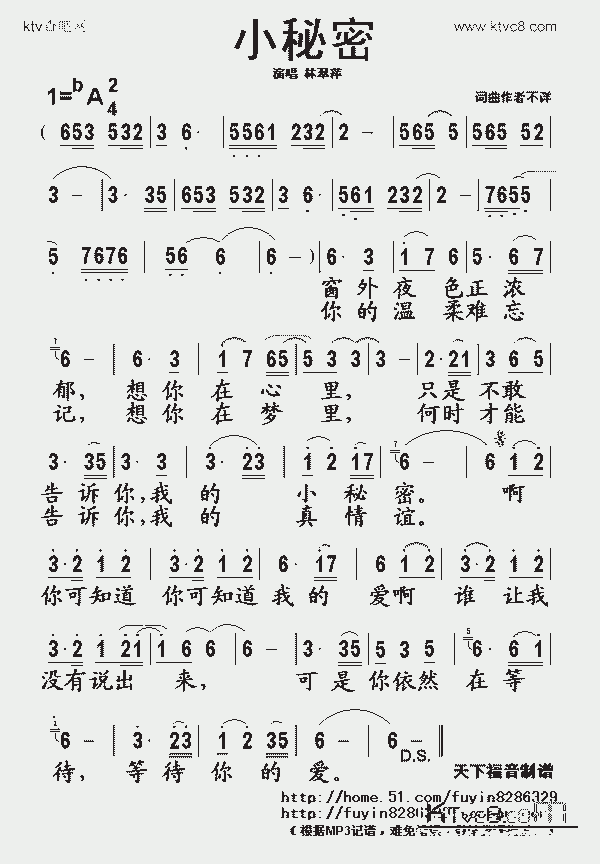 小秘密
www.ktvc8.com
演唱 林翠萍
1=bA 2/4
词曲作者不详
( 653 532 | 3 6· | 5561 232 | 2 – | 565 5 | 565 52 |
3 – | 3· 35 | 653 532 | 3 6· | 561 232 | 2 – | 7655
5 7676 | 56 6 | 6 – ) | 6· 3 | 1 7 6 | 5· 6 7 |
窗外夜色正浓
你的温柔难忘
6 – | 6· 3 | 1 7 65 | 5 3 3 | 3 – | 2· 21 | 3 6 5 |
郁，想你在心里，只是不敢
记，想你在梦里，何时才能
3· 35 | 3· 3 | 3· 23 | 1 2 17 | 6 – | 6 1 2 |
告诉你,我的小秘密。啊
告诉你,我的真情谊。
3·2 1 2 | 3·2 1 2 | 6· 17 | 6 1 2 | 3·2 1 2 |
你可知道 你可知道我的爱啊 谁让我
3·2 1 21 | 1 6 6 | 6 – | 3· 35 | 5 3 5 | 6· 6 1 |
没有说出来，可是你依然在等
6 – | 3· 23 | 1 2 35 | 6 – | 6 – ‖
D.S.
待，等待你的爱。
天下福音制谱
http://home.51.com/fuyin8286329
（根据MP3记谱，难免